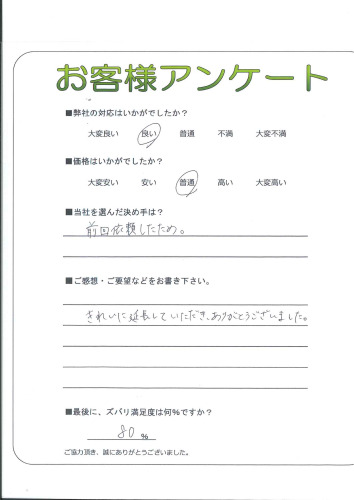 お客様アンケート
■弊社の対応はいかがでしたか?
大変良い 良い 普通 不満 大変不満
■価格はいかがでしたか?
大変安い 安い 普通 高い 大変高い
■当社を選んだ決め手は?
前回依頼したため。
■ご感想・ご要望などをお書き下さい。
きれいに延長していただき、ありがとうございました。
■最後に、ズバリ満足度は何%ですか?
80 %
ご協力頂き、誠にありがとうございました。